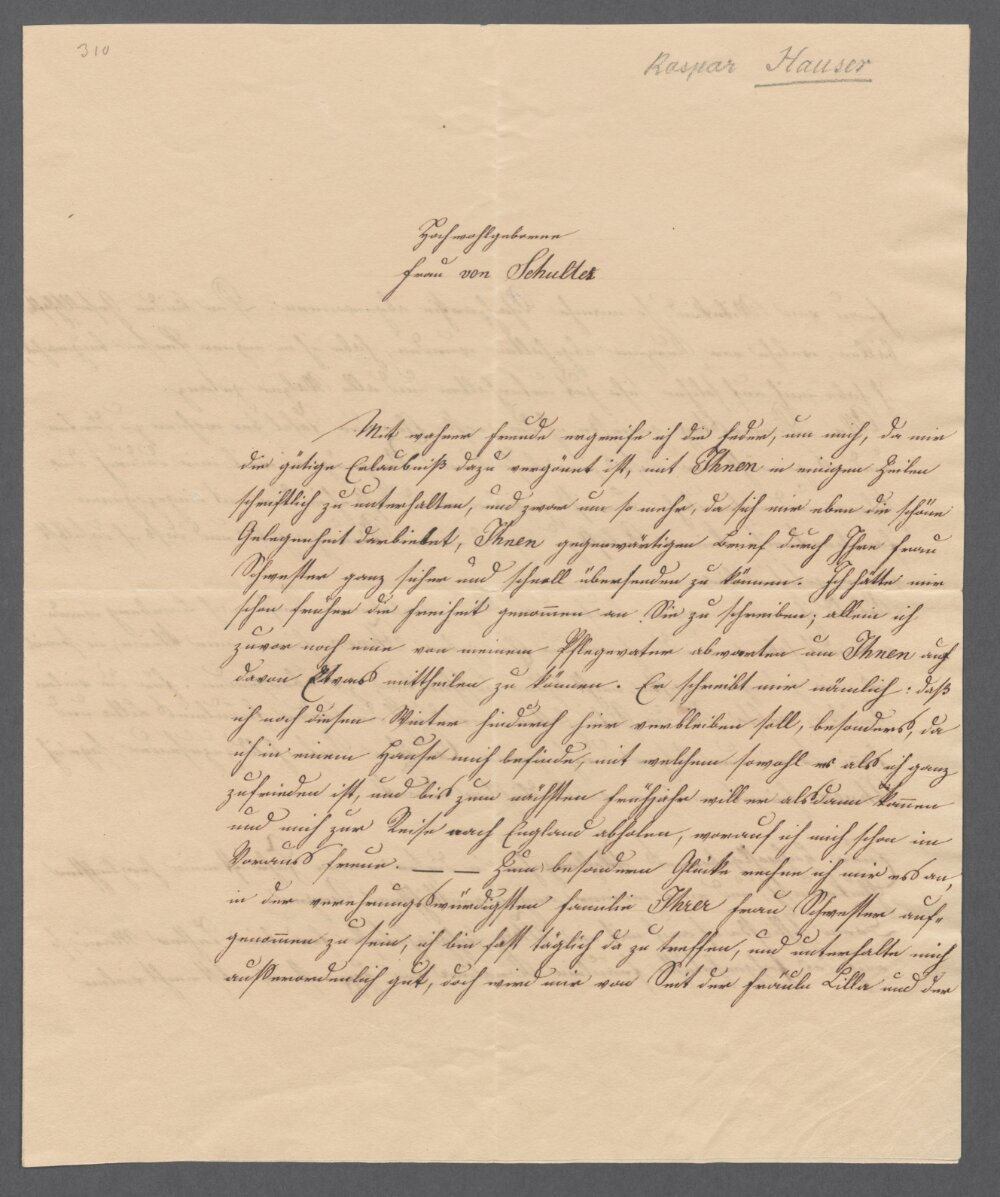 310
Kaspar Hauser
Hochwohlgeborene
Frau von Schulter
Mit wahrer Freude ergreife ich die Feder, um mich, da mir
die gütige Erlaubniß dazu vergönnt ist, mit Ihnen in einigen Zeilen
schriftlich zu unterhalten, und zwar um so mehr, da sich mir eben die schöne
Gelegenheit darbietet, Ihnen gegenwärtigen Brief durch Ihre Frau
Schwester ganz sicher und schnell übersenden zu können. Ich hätte mir
schon früher die Freiheit genommen an Sie zu schreiben; allein ich
zuvor noch eine von meinem Pflegevater abwarten um Ihnen auf
davon Etwas mittheilen zu können. Er schreibt mir nämlich: daß
ich noch diesen Winter hindurch hier verbleiben soll, besonders, da
ich in einem Hause mich befinde, mit welchem sowohl er als ich ganz
zufrieden ist, und bis zum nächsten Frühjahr will er alsdann kommen
und mich zur Reise nach England abholen, worauf ich mich schon im
Voraus freue. — — Zum besondern Glücke rechne ich mir es an,
in der verehrungswürdigsten Familie Ihrer Frau Schwester auf-
genommen zu sein, ich bin fast täglich da zu treffen, und unterhalte mich
außerordenlich gut, doch wird mir von Seit der Fräuln Lilla und der